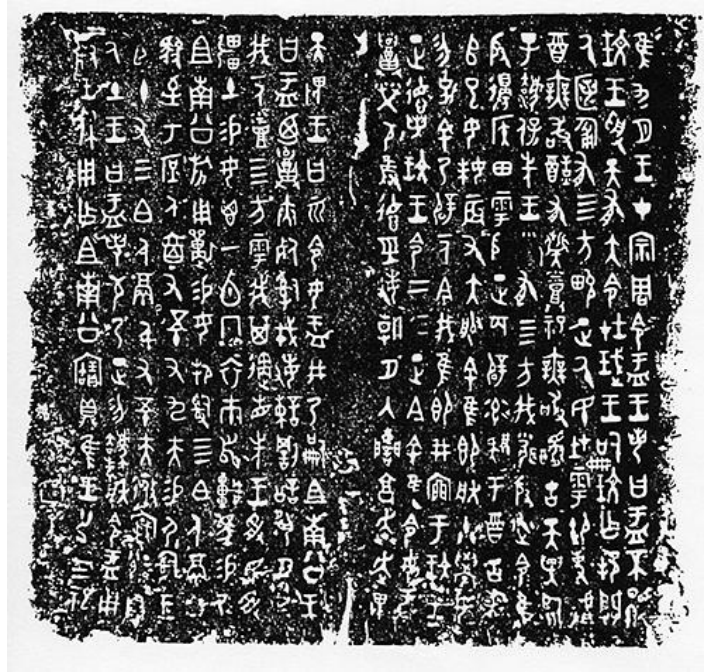 隹九月王才宗周令盂王若曰盂不顯
玟王受天有大令在珷王嗣玟乍邦闢
氒匿匍有四方畯正氒民在雩御事
酉無敢酖有祡蒸祀無敢醻古天異臨
子灋保先王有四方我聞殷述令隹
殷邊侯田雩殷正百辟率肄于酉古喪
師巳女妹辰又大服余隹即朕小學女
勿克余乃辟一人今我隹即井廩于玟王
正德若玟王令二三正今余隹令女盂
召榮敬雍德經敏朝夕入讕享奔走畏
天畏王曰而令女盂井乃嗣且南公王
曰盂乃召夾死司戎敏諫罰訟夙夕召
我一人烝四方雩我其遹省先王受民受
疆土易女鬯一卣冂衣巿舄車馬易乃
且南公旂用狩易女邦司四白人鬲自
馭至于庶人六百又五十又九夫易尸司王
臣十又三白人鬲千又五十夫遷自
氒土王曰盂若敬乃正勿灋朕令盂用
對王休用乍且南公寶鼎隹王廿又三祀